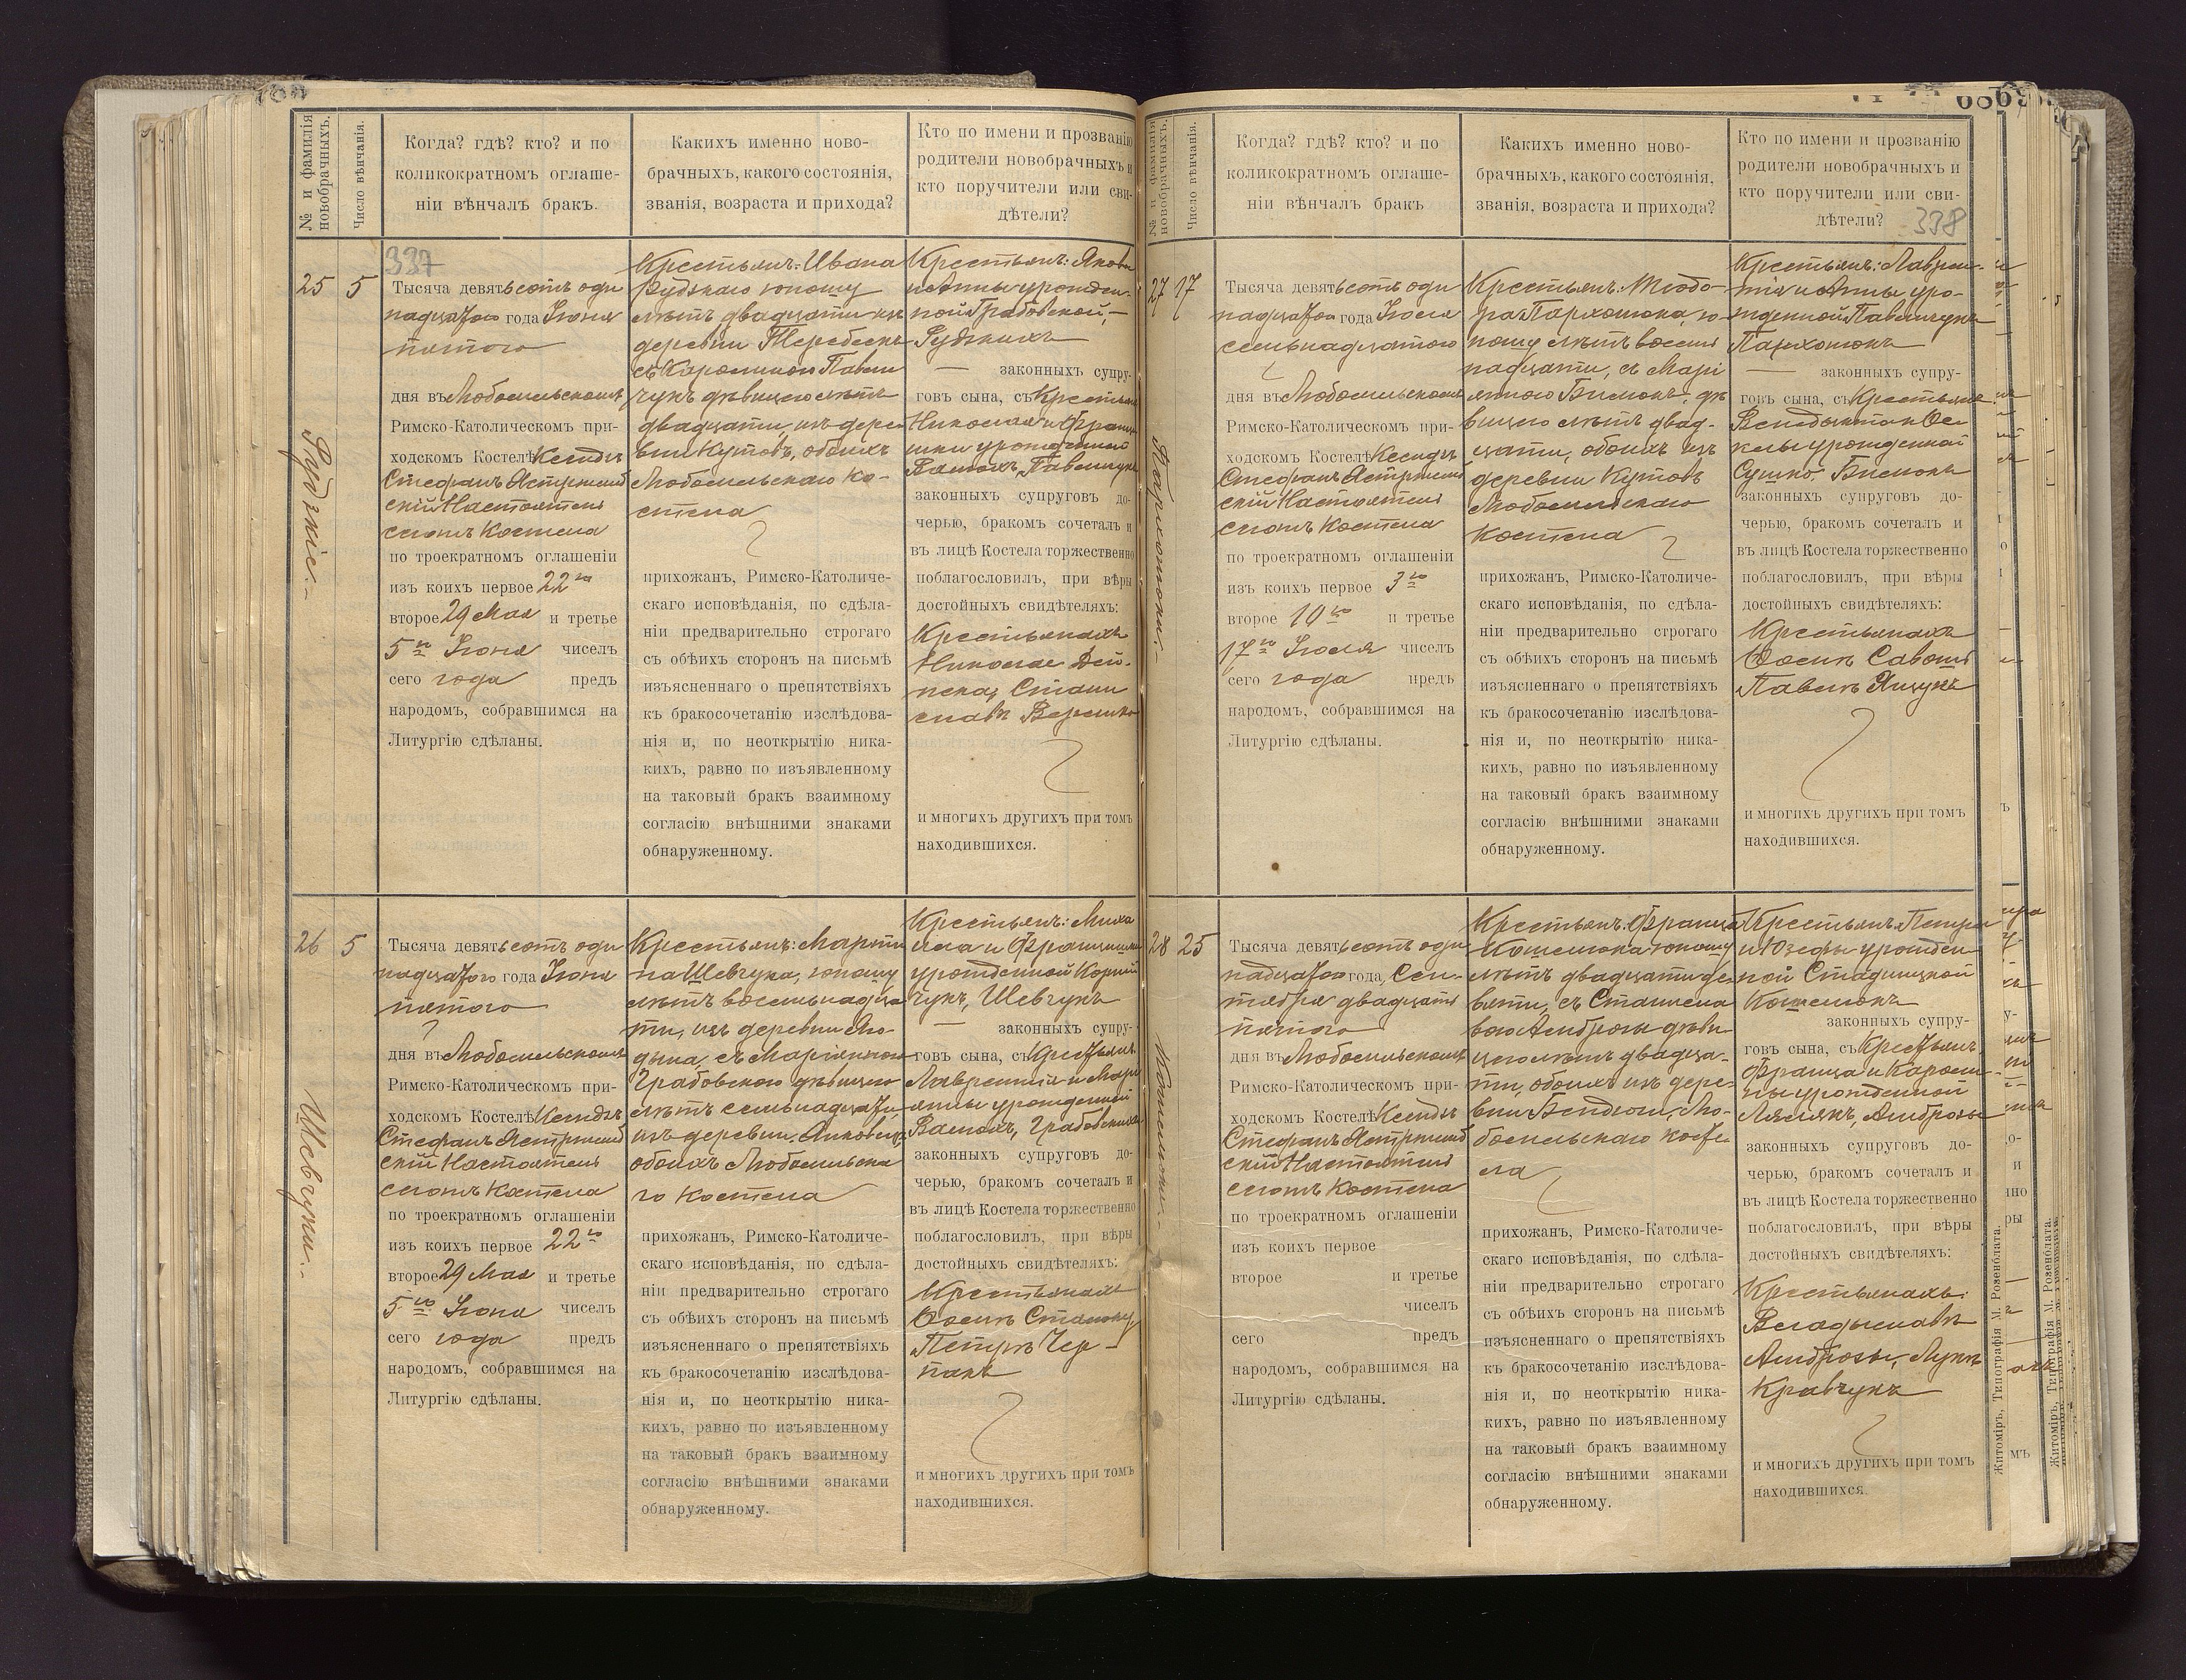 № и фамилія новобрачныхъ.
Число вѣнчанія.
Когда? гдѣ? кто? и по
коликократномъ оглаше-
ніи вѣнчалъ бракъ.
Какихъ именно ново-
брачныхъ, какого состоянія,
званія, возраста и прихода?
Кто по имени и прозванію
родители новобрачныхъ и
кто поручители или сви-
дѣтели?
337
25
5
Рудзкіе.
Тысяча девятьсотъ оди
надцатого года Іюня
пятого
дня въ Любомльскомъ
Римско-Католическом при-
ходскомъ Костелѣ Ксендзъ
Стефанъ Ястржемб
скій Настоятель
сего Костела
по троекратномъ оглашеніи
изъ коихъ первое 22го
второе 29 Мая и третье
5го Іюня чиселъ
сего года предъ
народомъ, собравшимся на
Литургію сдѣланы.
Крестьянъ: Ивана
Рудзкаго юношу
лѣтъ двадцати изъ
деревни Теребеекъ
съ Каролиною Павли
чукъ дѣвицею лѣтъ
двадцати, изъ дере
вни Кутовъ, обоихъ
Любомльскаго Ко-
стела
прихожанъ, Римско-Католиче-
скаго исповѣданія, по сдѣла-
ніи предварительно строгаго
съ обѣихъ сторонъ на письмѣ
изъясненнаго о препятствіяхъ
къ бракосочетанію изслѣдова-
нія и, по неоткрытію ника-
кихъ, равно по изъявленному
на таковый бракъ взаимному
согласію внѣшними знаками
обнаруженному.
Крестьянъ: Якова
и Анны урожден-
ной Грабовской,
Рудзкихъ
законныхъ супру-
говъ сына, съ Крестьянъ
Николая и Франци
шки урожденной
Павлчукъ
законныхъ супруговъ до-
черью, бракомъ сочеталъ и
въ лицѣ Костела торжественно
поблагословилъ, при вѣры
достойныхъ свидѣтеляхъ:
Крестьянахъ
Николае Дей-
нека, Стани
славъ Веремко
и многихъ другихъ при томъ
находившихся.
26
5
Шевчуки.
Тысяча девятьсотъ оди
надцатого года Іюня
пятого
дня въ Любомльскомъ
Римско-Католическомъ при-
ходскомъ Костелѣ Ксендзъ
Стефанъ Ястржемб
скій Настоятель
сего Костела
по троекратномъ оглашеніи
изъ коихъ первое 22го
второе 29 Мая и третье
5го Іюня чиселъ
сего года предъ
народомъ, собравшимся на
Литургію сдѣланы.
Крестьянъ: Марти
на Шевчука, юношу
лѣтъ восемьнадца
ти, изъ деревни
съ Маріанною
Грабовскою дѣвицею
лѣтъ семьнадцати,
изъ деревни
обоихъ Любомльска
го Костела
прихожанъ, Римско-Католиче-
скаго исповѣданія, по сдѣла-
ніи предварительно строгаго
съ обѣихъ сторонъ на письмѣ
изъясненнаго о препятствіяхъ
къ бракосочетанію изслѣдова-
нія и, по неоткрытію ника-
кихъ, равно по изъявленному
на таковый бракъ взаимному
согласію внѣшними знаками
обнаруженному.
Крестьянъ: Миха
ила и Францишки
урожденной Корній
чукъ, Шевчукъ
законныхъ супру-
говъ сына, съ Крестьянъ
Лаврентія и Мари
янны урожденной
Грабовскихъ
законныхъ супруговъ до-
черью, бракомъ сочеталъ и
въ лицѣ Костела торжественно
поблагословилъ, при вѣры
достойныхъ свидѣтеляхъ:
Крестьянахъ
Осипъ
Петръ Чер-
накъ
и многихъ другихъ при томъ
находившихся.
6869
№ и фамилія новобрачныхъ.
Число вѣнчанія.
Когда? гдѣ? кто? и по
коликократномъ оглаше-
ніи вѣнчалъ бракъ
Какихъ именно ново-
брачныхъ, какого состоянія,
званія, возраста и прихода?
Кто по имени и прозванію
родители новобрачныхъ и
кто поручители или сви-
дѣтели?
338
27
17
Пархомюки.
Тысяча девятьсотъ оди
надцатого года Іюля
семьнадцатого
дня въ Любомльскомъ
Римско-Католическомъ при-
ходскомъ Костелѣ Ксендзъ
Стефанъ Ястржемб
скій Настоятель
сего Костела
по троекратномъ оглашеніи
изъ коихъ первое 3го
второе 10го и третье
17го Іюля чиселъ
сего года предъ
народомъ, собравшимся на
Литургію сдѣланы.
Крестьянъ: Теодо-
ра Пархомюка, ю-
ношу лѣтъ восемь
надцати, съ Марі
янною Бисюкъ, дѣ
вицею лѣтъ двад-
цати, обоихъ изъ
деревни Кутовъ
Любомльскаго
Костела
прихожанъ, Римско-Католиче-
скаго исповѣданія, по сдѣла-
ніи предварительно строгаго
съ обѣихъ сторонъ на письмѣ
изъясненнаго о препятствіяхъ
къ бракосочетанію изслѣдова-
нія и, по неоткрытію ника-
кихъ, равно по изъявленному
на таковый бракъ взаимному
согласію внѣшними знаками
обнаруженному.
Крестьянъ: Лаврен-
тія и Анны уро-
жденной Павличукъ
Пархомюкъ
законныхъ супру-
говъ сына, съ Крестьянъ
Венедыкта и Фе
клы урожденной
Сушко, Бисюкъ
законныхъ супруговъ до-
черью, бракомъ сочеталъ и
въ лицѣ Костела торжественно
поблагословилъ, при вѣры
достойныхъ свидѣтеляхъ:
Крестьянахъ
Осипъ
Павелъ Ящукъ
и многихъ другихъ при томъ
находившихся.
28
25
Тысяча девятьсотъ оди
надцатого года, Сен-
тября двадцать
пятого
дня въ Любомльскомъ
Римско-Католическомъ при-
ходскомъ Костелѣ Ксендзъ
Стефанъ Ястржемб
скій Настоятель
сего Костела
по троекратномъ оглашеніи
изъ коихъ первое
второе и третье
чиселъ
сего предъ
народомъ, собравшимся на
Литургію сдѣланы.
Крестьянъ: Франца
юношу
лѣтъ двадцати де
вяти, съ Станисла
вою Амброзы дѣви
цею лѣтъ двадца-
ти, обоихъ изъ дере-
вни Бендюги, Лю-
бомльскаго Косте
ла
прихожанъ, Римско-Католиче-
скаго исповѣданія, по сдѣла-
ніи предварительно строгаго
съ обѣихъ сторонъ на письмѣ
изъясненнаго о препятствіяхъ
къ бракосочетанію изслѣдова-
нія и, по неоткрытію ника-
кихъ, равно по изъявленному
на таковый бракъ взаимному
согласію внѣшними знаками
обнаруженному.
Крестьянъ: Петра
и Юзефы урожден
ной Стадницкой
законныхъ супру-
говъ сына, съ Крестьянъ,
Франца и Кароли
ны урожденной
Амброзы
законныхъ супруговъ до-
черью, бракомъ сочеталъ и
въ лицѣ Костела торжественно
поблагословилъ, при вѣры
достойныхъ свидѣтеляхъ:
Крестьянахъ:
Владыславъ
Амброзы, Лукъ
Кравчукъ
и многихъ другихъ при томъ
находившихся.
Житоміръ, Типографія М. Розенблата.
Житоміръ, Типографія М. Розенблата.